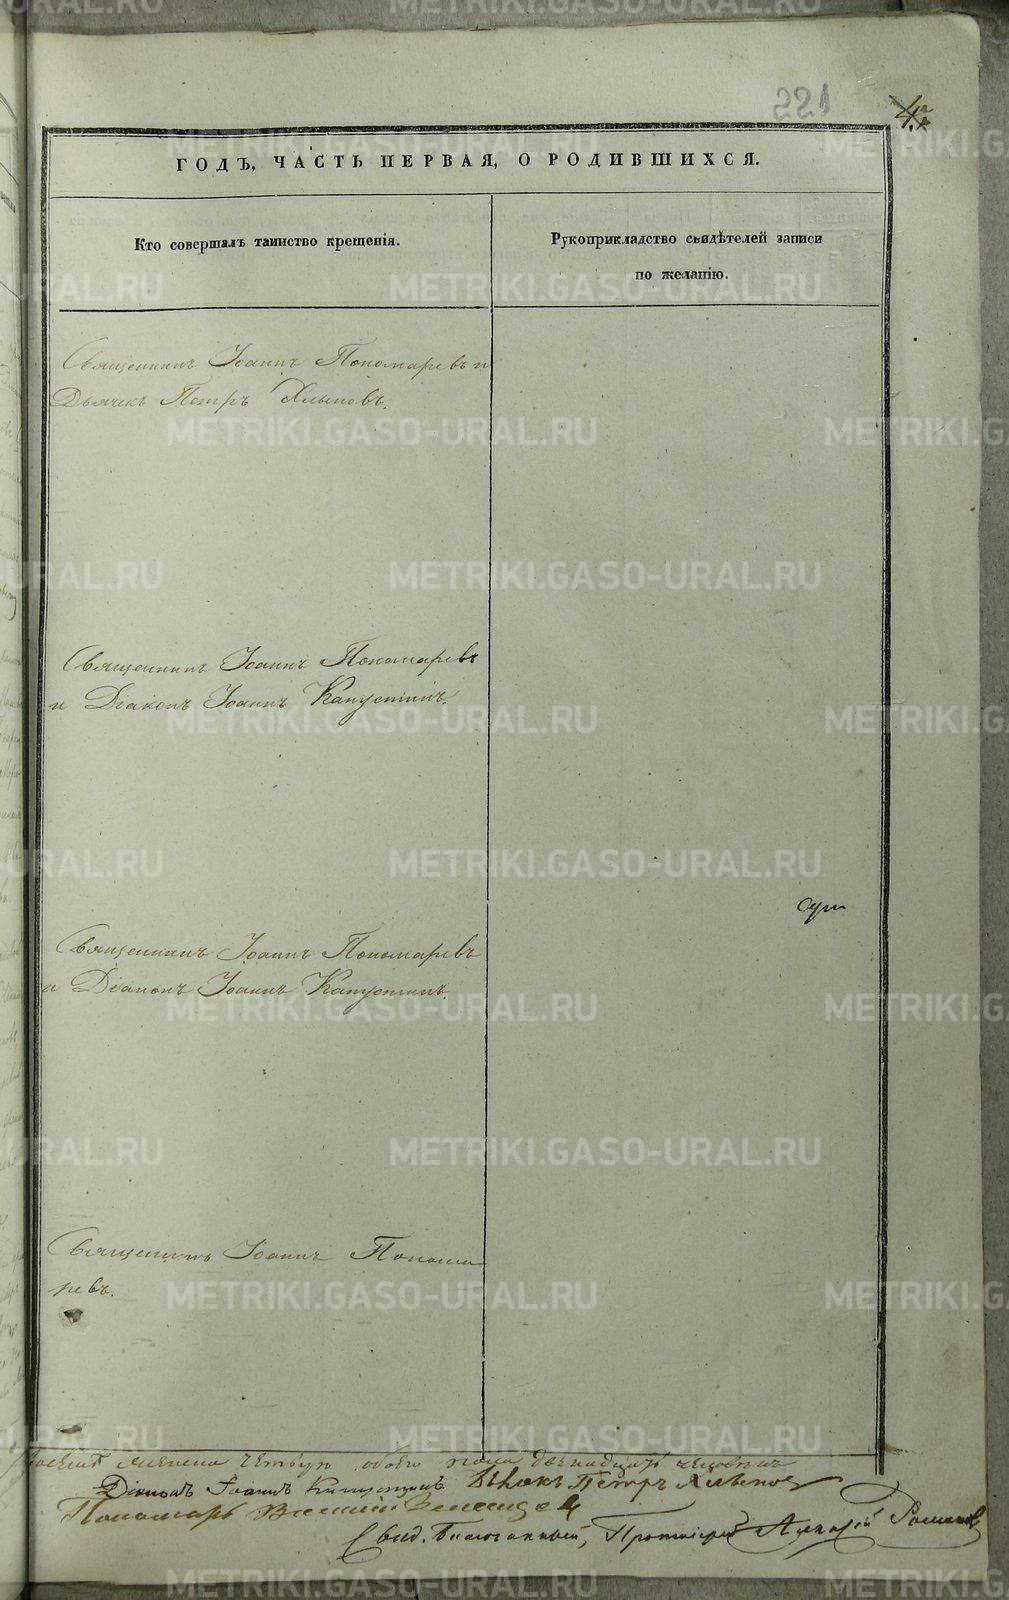 221
4.
ГОДЪ, ЧАСТЬ ПЕРВАЯ, О РОДИВШИХСЯ.
Кто совершалъ таинство крещенія.
Рукоприкладство свидѣтелей записи
по желанію.
Священникъ Іоаннъ Пономаревъ и
Дьячекъ Петръ Хлыновъ.
Священникъ Іоаннъ Пономаревъ
и Діаконъ Іоаннъ Капустинъ.
Священникъ Іоаннъ Пономаревъ
и Діаконъ Іоаннъ Капустинъ.
Священникъ Іоаннъ Понома
ревъ.
обоего пола двенадцать человекъ
Діаконъ Іоаннъ Капустинъ Дьячекъ Петръ Хлыновъ
Пономарь Василий
Свид. Благочинный, Протоіерей Романов
METRIKI.GASO-URAL.RU